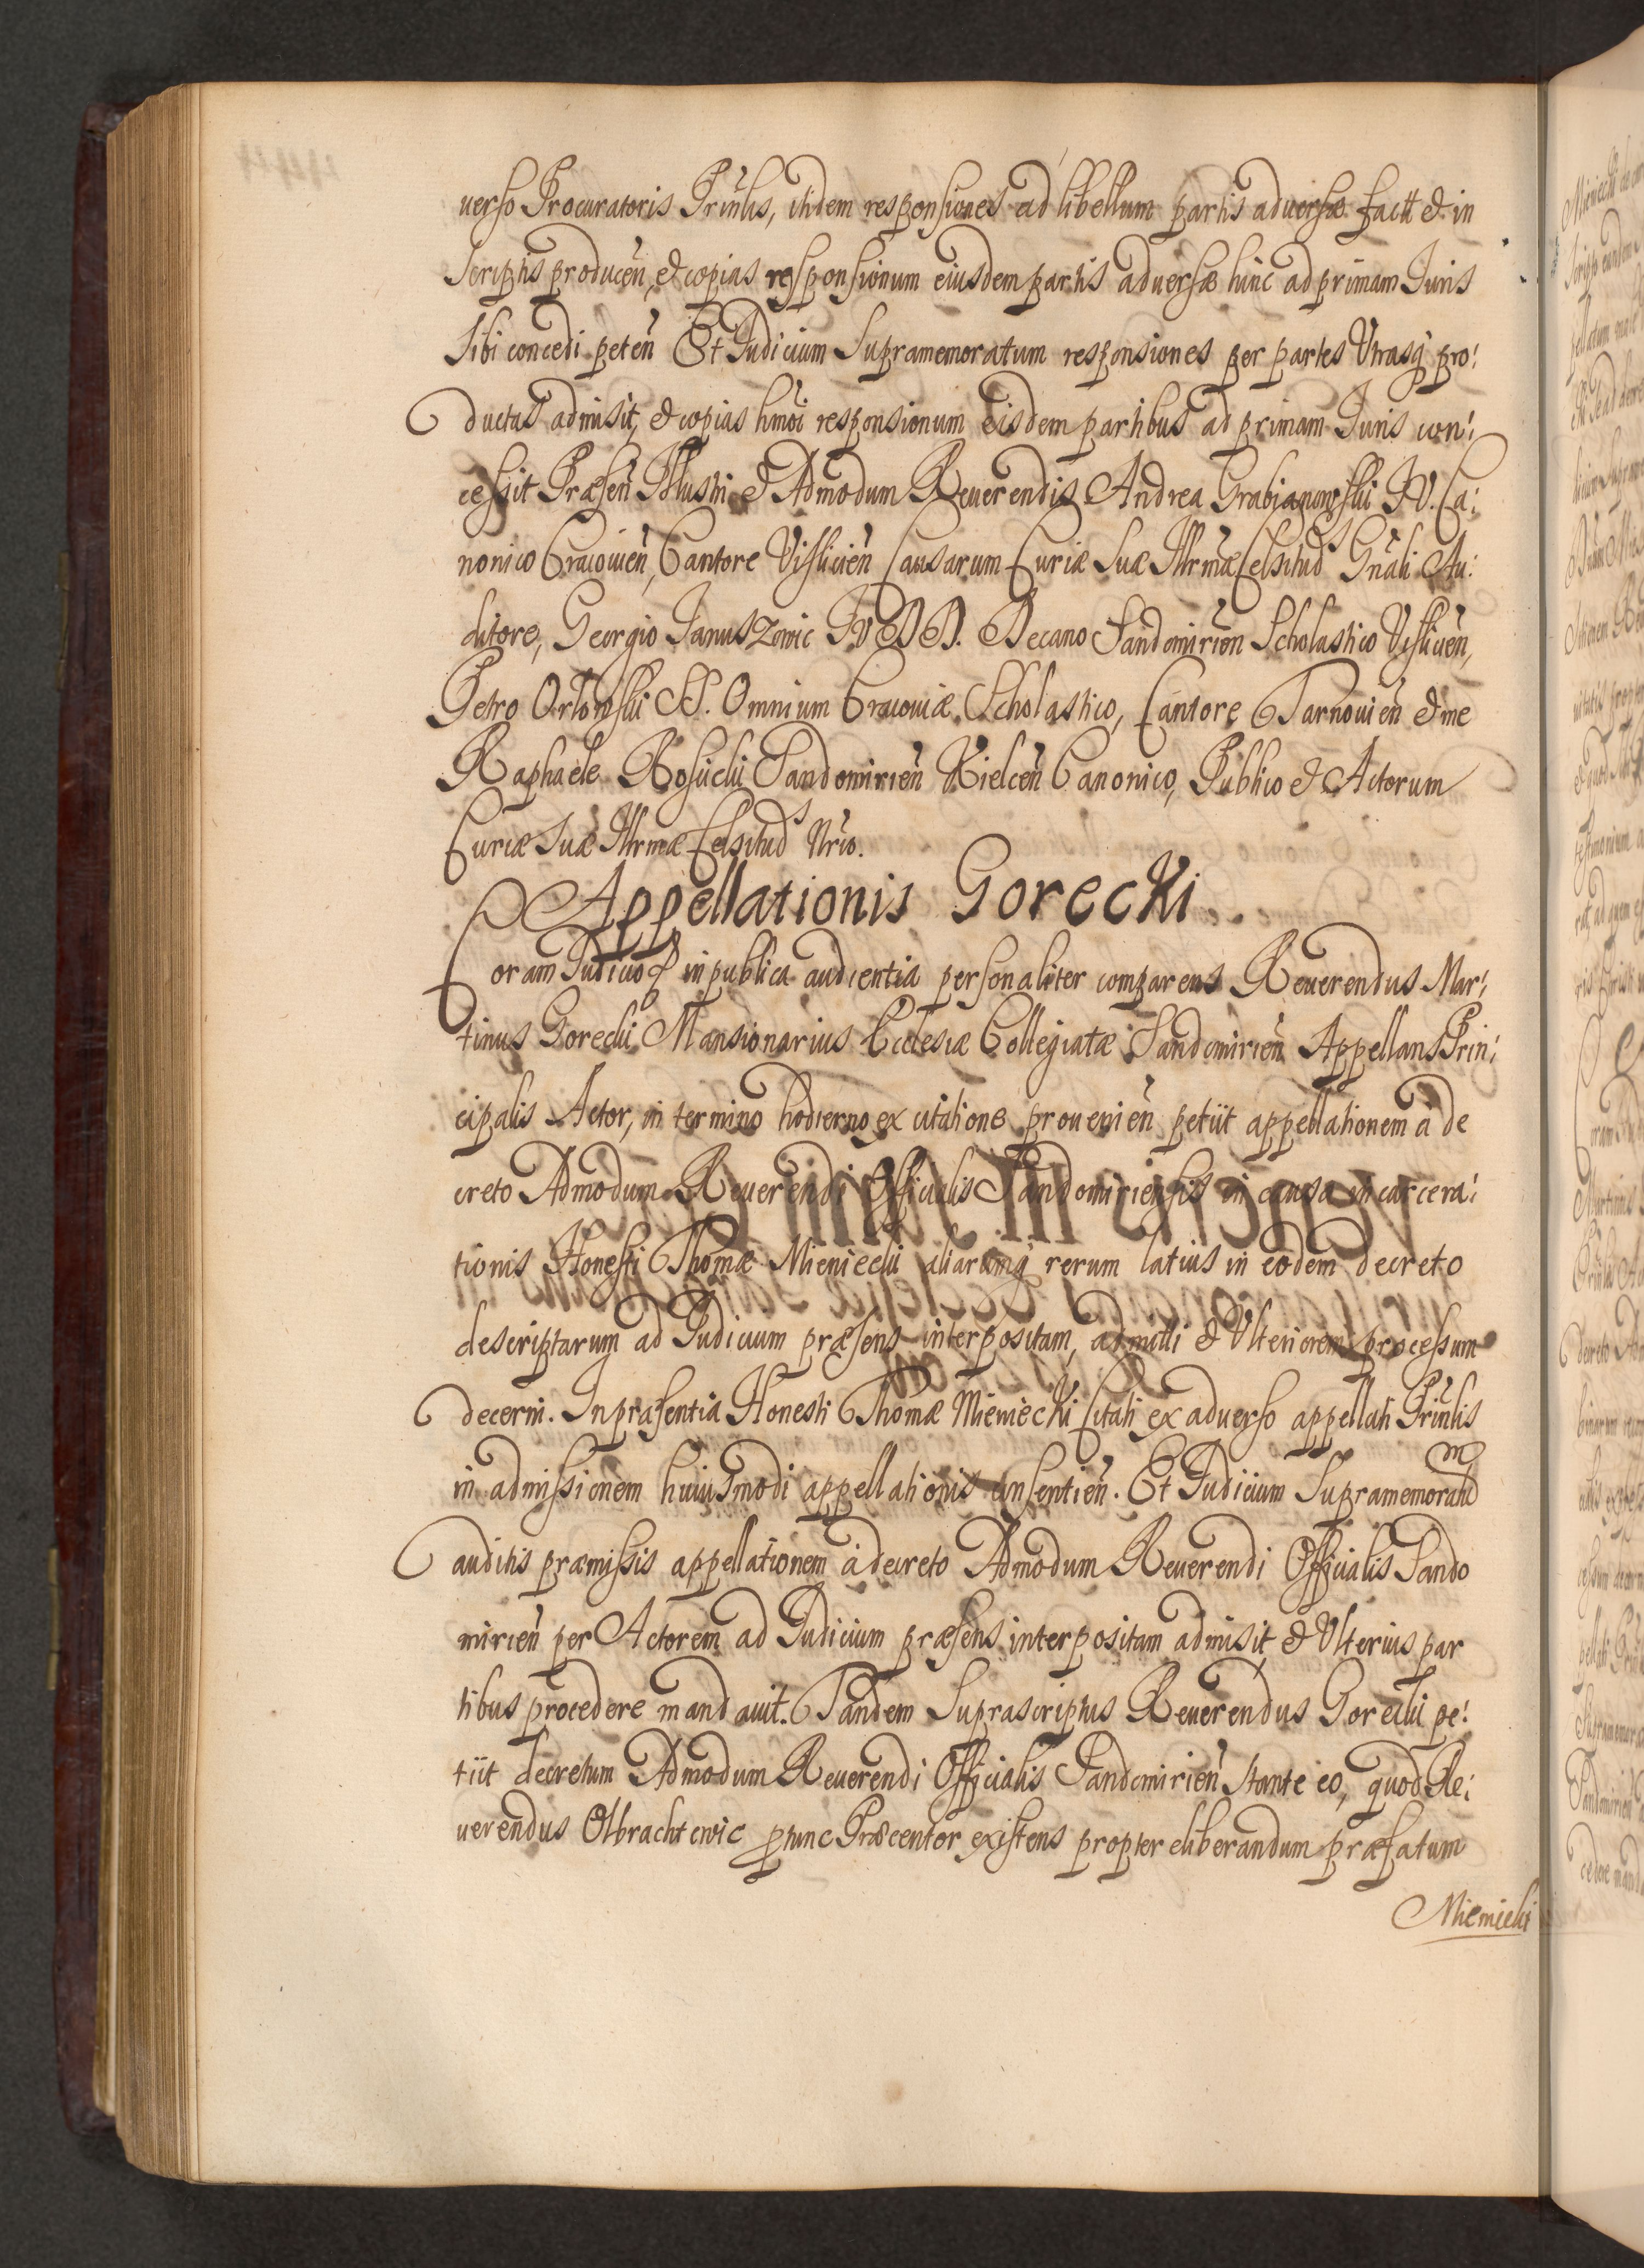 uerso Procuratoris Prinlis, itidem responsiones ad libellum partis aduersæ fact & in
scriptis producen̄, & copias responsionum eiusdem partis aduersæ hinc ad primam Iuris
sibi concedi peten̄ Et Iudicium Supramemoratum responsiones per partes Vtrasq pro:
ductas admisit, & copias hmōi responsionum eisdem partibus ad primam Iuris con:
cessit Præsen̄ Illustri & Admodum Reuerendis Andrea Grabianowski IV. Ca:
nonico Cracouien̄, Cantore Visliciēn Causarum Curiæ Suæ Illrmæ Celsitud̄s Gn̄ali Au:
ditore, Georgio Ianuszowic IVDD. Decano Sandomirien̄ Scholastico Vislicien̄,
Petro Orlowski SS. Omnium Cracouiæ Scholastico, Cantore Tarnouien̄ & me
Raphaele Rosiecki Sandomirien̄ Kielcen̄ Canonico, Publico & Actorum
Curiæ Suæ Illrmæ Celsitud̄s Nrio.
Appellationis Gorecki
Coram Iudicio & in publica audientia personaliter comparens Reuerendus Mar:
tinus Gorecki Mansionarius Ecclesiæ Collegiatæ Sandomirien̄ Appellans Prin:
cipalis Actor, in termino hodierno ex citatione prouenien̄ petiit appellationem à de
creto Admodum Reuerendi Officialis Sandomiriensis in causa incarcera:
tionis Honesti Thomæ Mieniecki aliarumq rerum latius in eodem decreto
descriptarum ad Iudicium præsens interpositam, admitti & Vlteriorem processum
decerni. In præsentia Honesti Thomæ Mieniecki Citati ex aduerso appellati Prinlis
in admissionem huiusmodi appellationis consentien̄. Et Iudicium Supramemoratū
auditis præmissis appellationem à decreto Admodum Reuerendi Officialis Sando
mirien̄ per Actorem ad Iudicium præsens interpositam admisit, & Vlterius par
tibus procedere mandauit. Tandem Suprascriptus Reuerendus Gorecki pe:
tiit decretum Admodum Reuerendi Officialis Sandomirien̄ stante eo, quod Re:
uerendus Olbrachtowic ptunc Præcentor existens propter eliberandum præfatum
Mieniecki